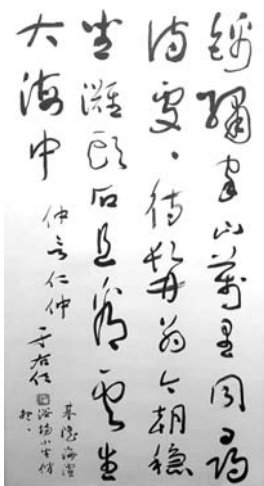 錦繡家山萬里同尋
詩處々待髯翁今朝穩
坐灘頭石且看雲生
大海中
仲言仁仲
于右任
基隆海濱
浴場小坐